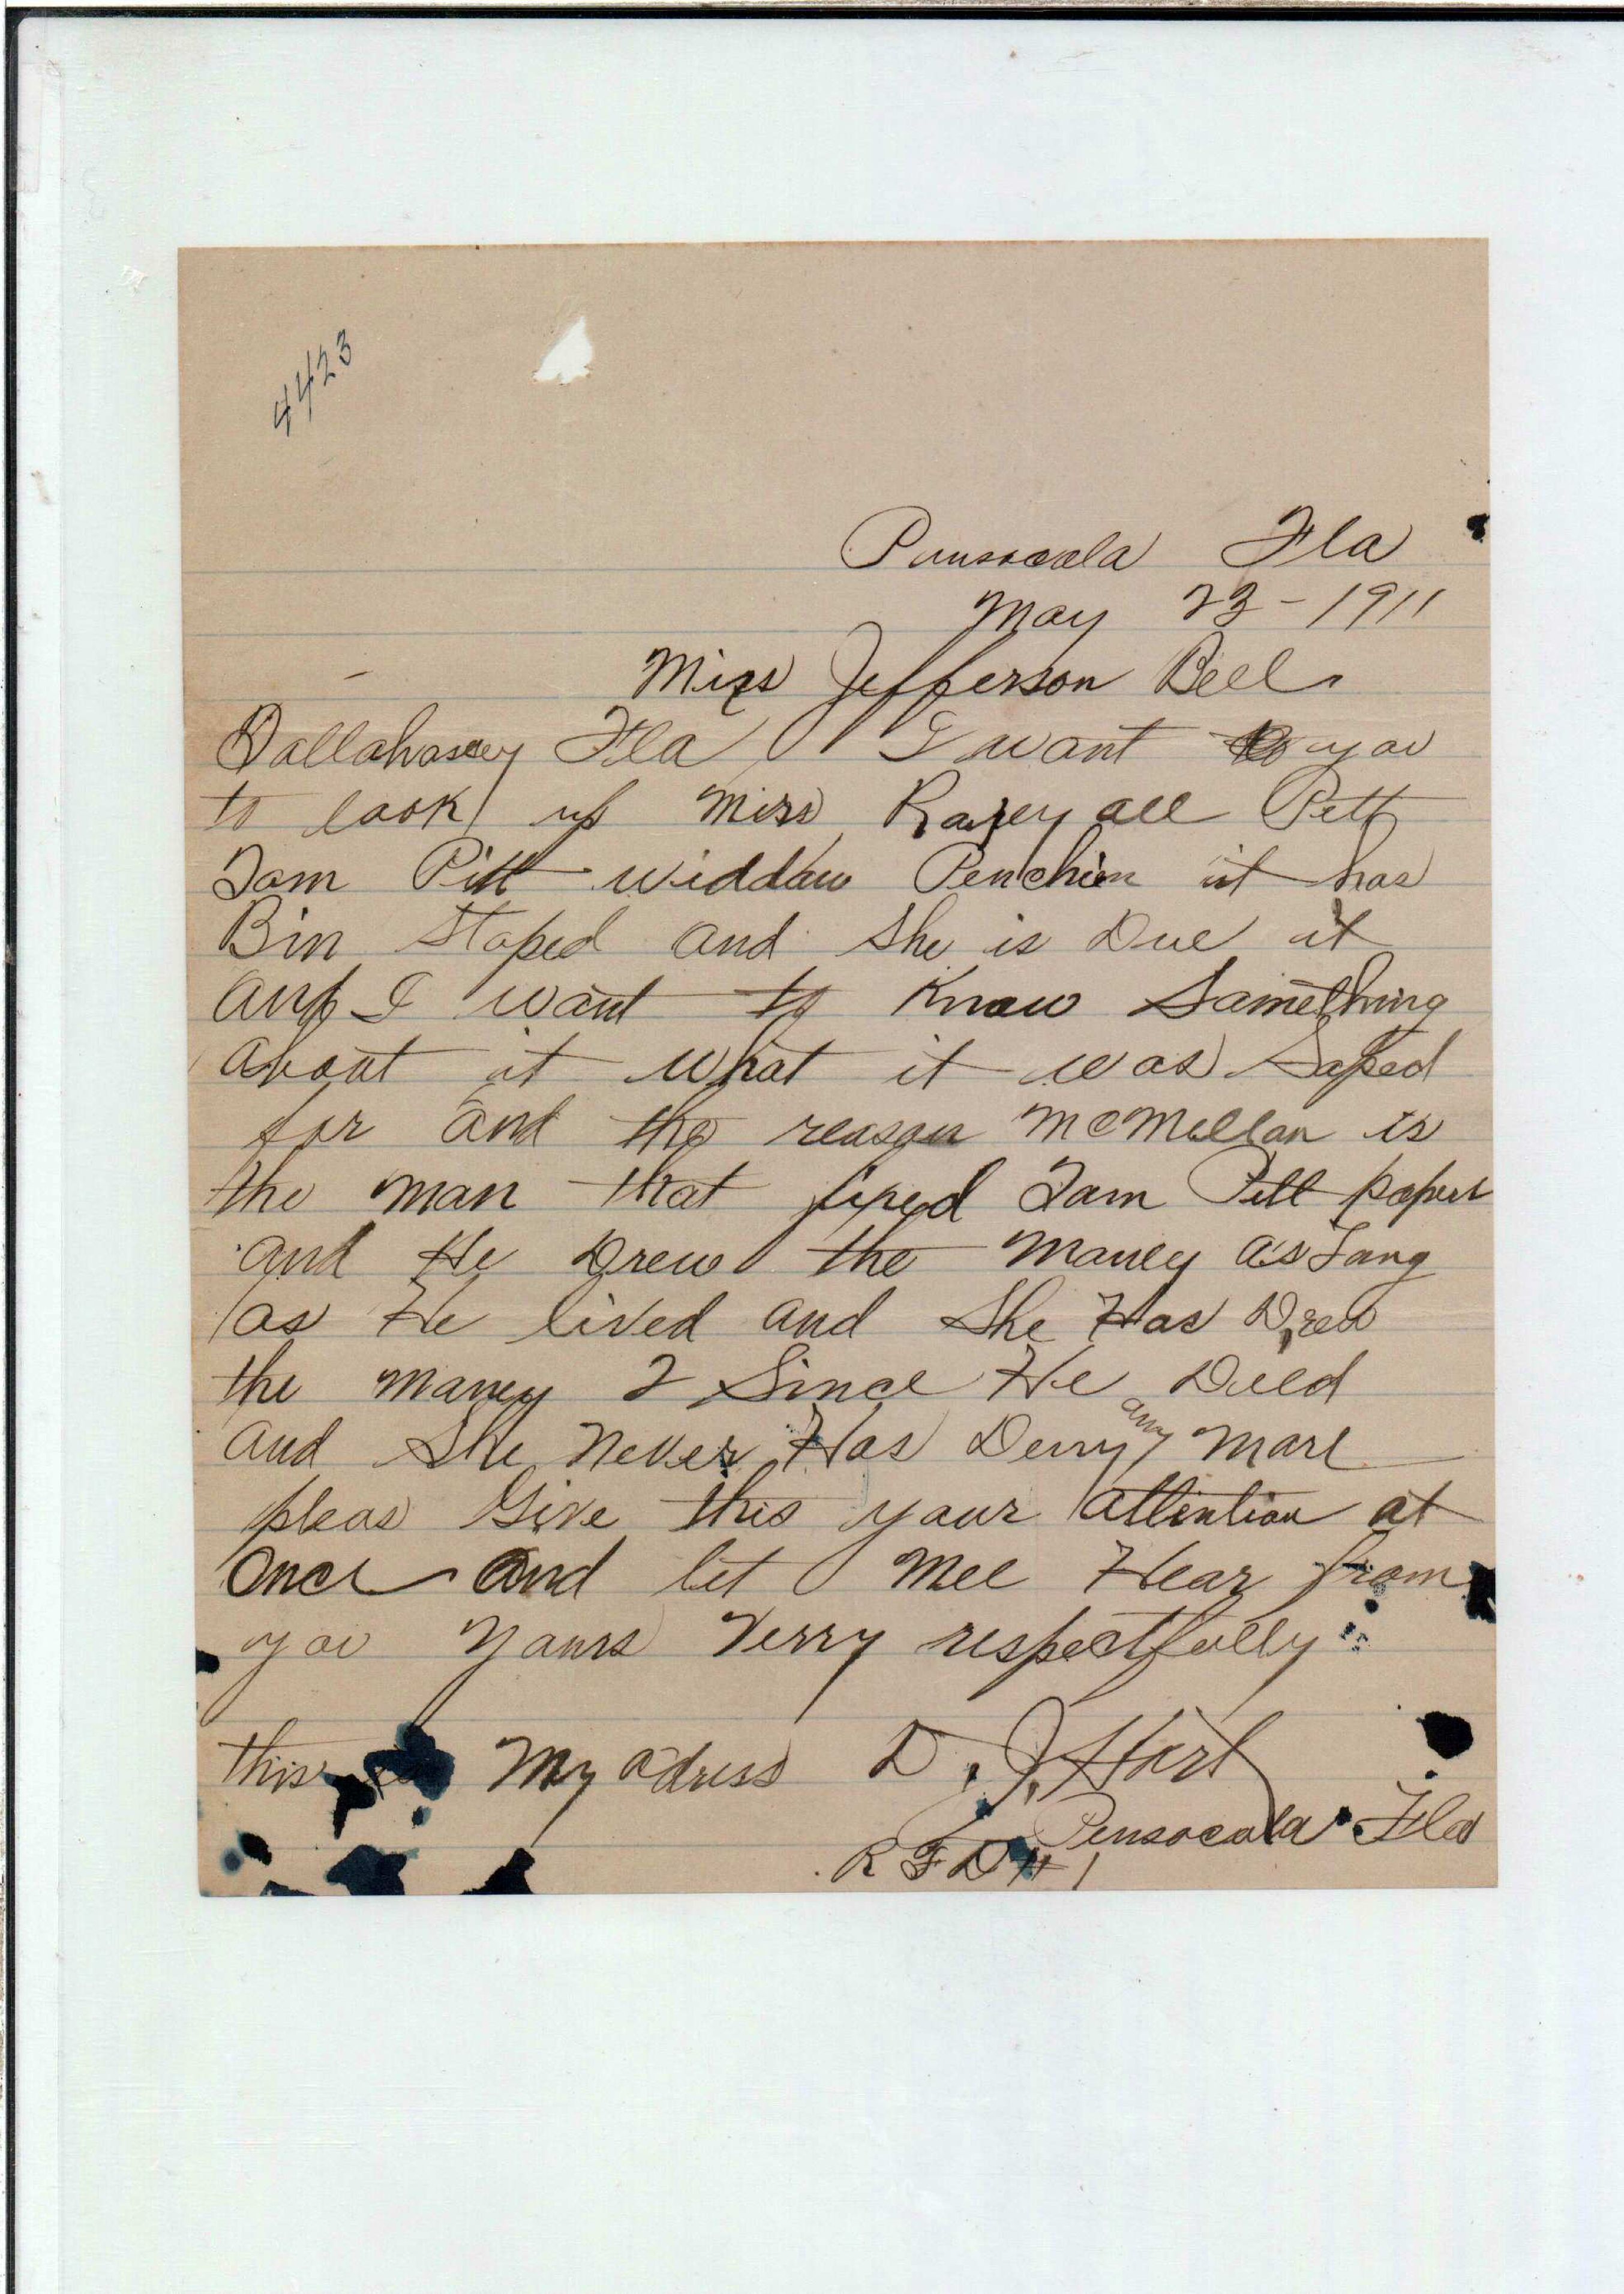 4423
Pensacola Fla
May 23 - 1911
Miss Jefferson Bell
Tallahassey Fla I want you
to look up Miss Pitt
Tom Pitt widdow Penchion it has
Bin Stoped and She is Due it
and I want to Know Something
about it what it was Soped
for and the reason McMillan is
the man that fixed Tom Pitt papers
and He Drew the Money as Long
as He lived and She Has Drew
the money 2 Since He Died
and She Never Has any More
pleas Give this your attention at
Once and let Mee Hear from
you yours Verry respectfully
this My adress D. J. Hirt
Pensacola Fla
R F D # 1